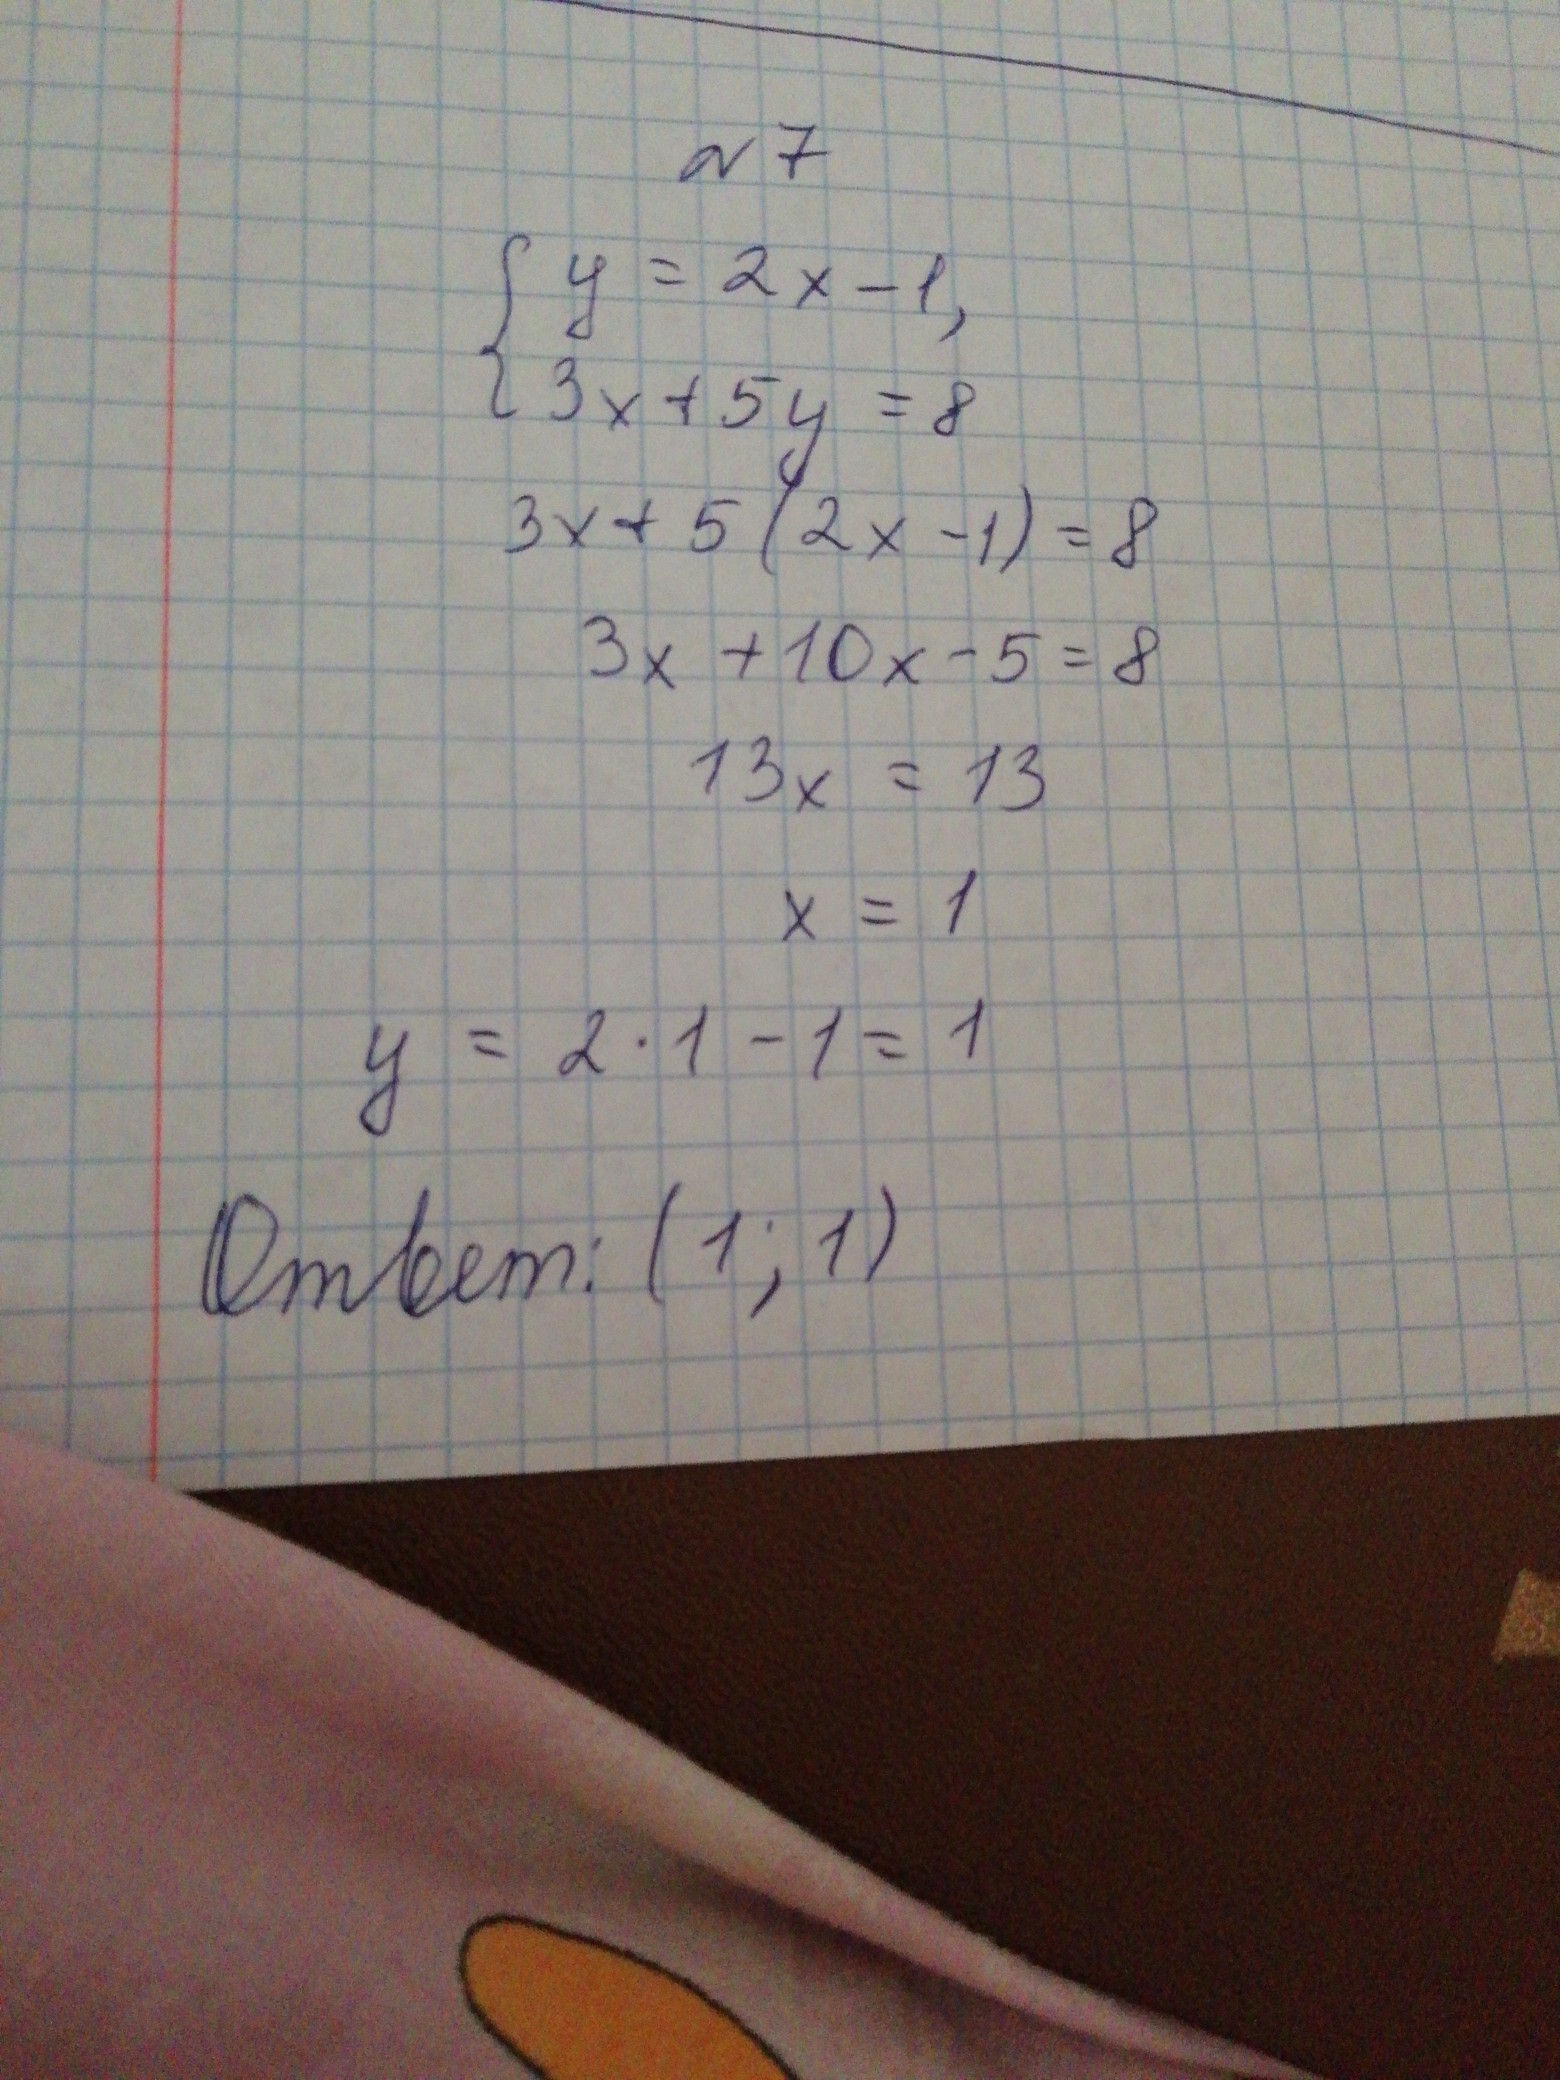 №7
{ y = 2x - 1,
3x + 5y = 8
3x + 5(2x - 1) = 8
3x + 10x - 5 = 8
13x = 13
x = 1
y = 2·1 - 1 = 1
Ответ: (1; 1)